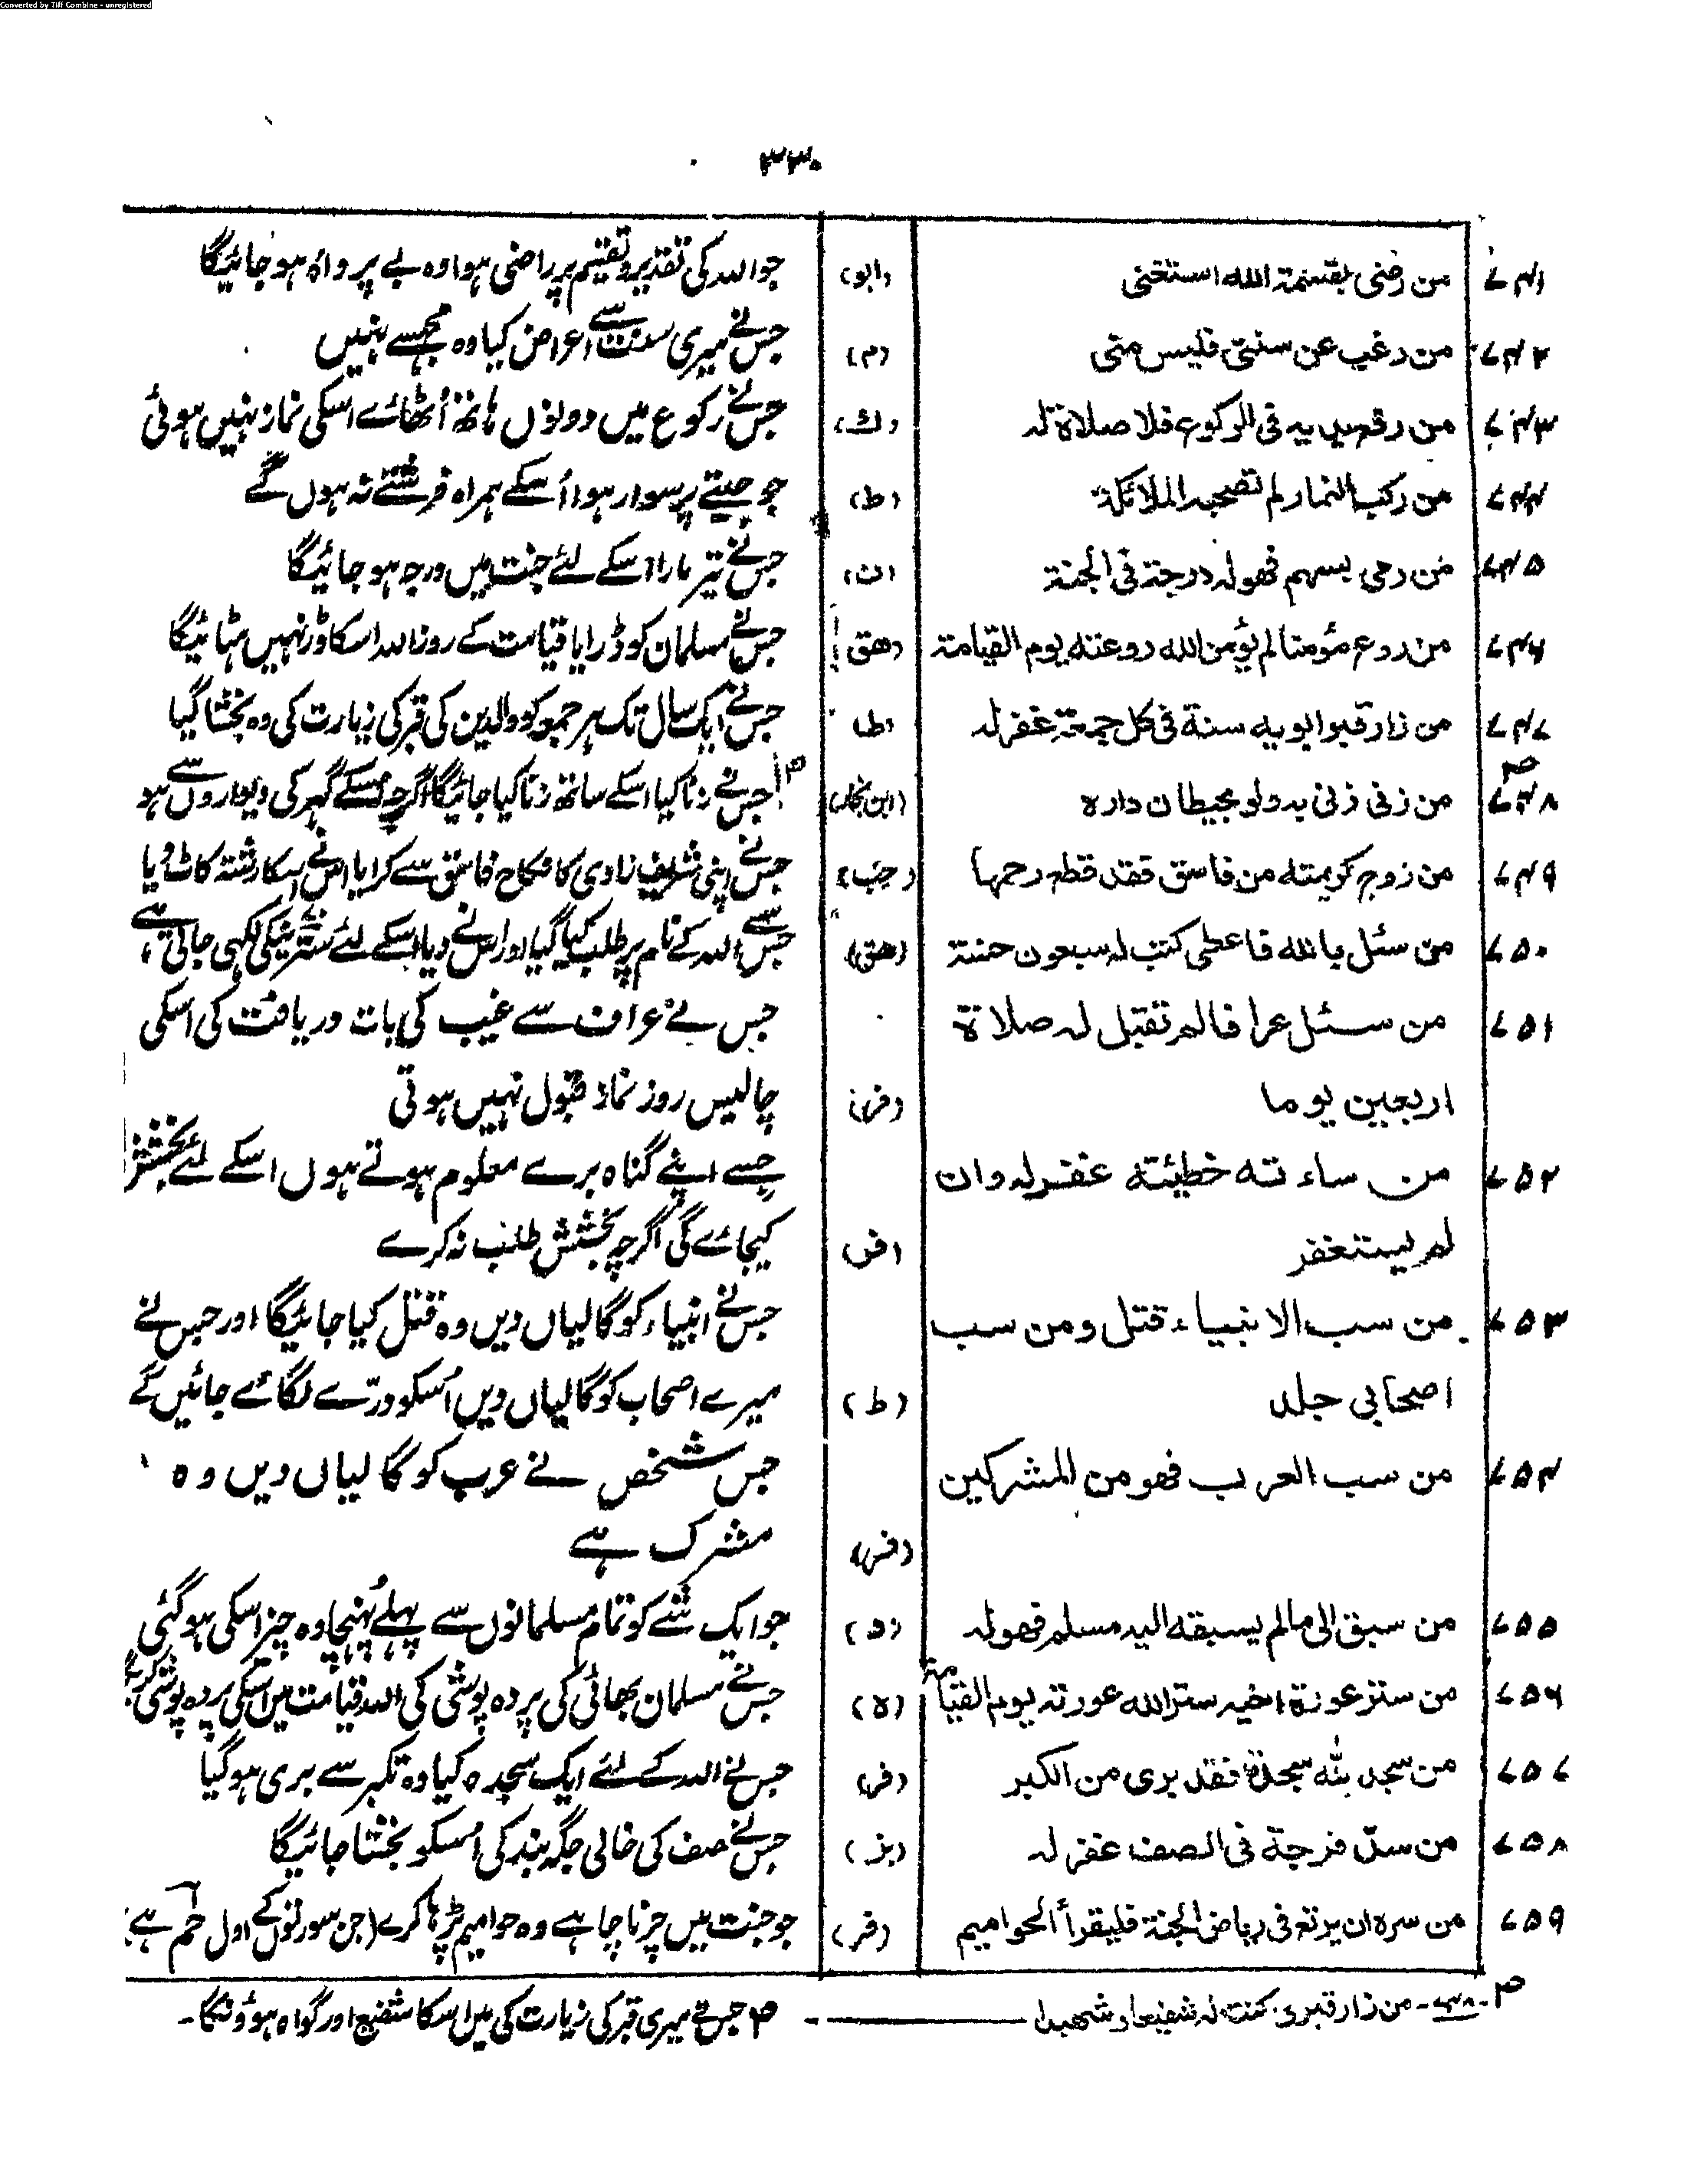 Converted by Tiff Combine - unregistered
۳۳۰
۷۴۱ من رضی بقسمۃ اللہ استغنی (ابو) جو اللہ کی تقدیر و تقسیم پر راضی ہوا وہ بے پرواہ ہو جائیگا
۷۴۲ من رغب عن سنتی فلیس منی (م) جس نے میری سنت سے اعراض کیا وہ مجھسے نہیں
۷۴۳ من رفع یدیہ فی الرکوع فلا صلاۃ لہ (ك) جس نے رکوع میں دونوں ہاتھ اُٹھائے اسکی نماز نہیں ہوئی
۷۴۴ من رکب النمار لم تصحبہ الملائکۃ (ط) جو چیتے پر سوار ہوا اُسکے ہمراہ فرشتے نہ ہوں گے
۷۴۵ من رمی بسہم فھولہ درجۃ فی الجنۃ (ن) جس نے تیر مارا اسکے لئے جنت میں درجہ ہو جائیگا
۷۴۶ من روع مؤمنا لم یؤمن اللہ روعتہ یوم القیامۃ (ھق) جس نے مسلمان کو ڈرایا قیامت کے روز اللہ اسکا ڈر نہیں ہٹائیگا
۷۴۷ من زار قبر ابویہ سنۃ فی کل جمعۃ غفر لہ (طا) جس نے ایک سال تک ہر جمعہ کو والدین کی قبر کی زیارت کی وہ بخشا گیا
۷۴۸ من زنی زنی بہ ولو بحیطان دارہ (ابن نجار) جس نے زنا کیا اسکے ساتھ زنا کیا جائیگا اگرچہ اسکے گھر کی دیواروں سے ہو
۷۴۹ من زوج کریمتہ من فاسق فقد قطع رحمہا (حب) جس نے اپنی شریف زادی کا نکاح فاسق سے کرایا اس نے اسکا رشتہ کاٹ دیا
۷۵۰ من سئل باللہ فاعطی کتب لہ سبعون حسنۃ (ھق) جس سے اللہ کے نام پر طلب کیا گیا اور اس نے دیا اسکے لئے ستر نیکی لکھی جاتی ہے
۷۵۱ من سئل عرافا لم تقبل لہ صلاۃ جس نے عراف سے غیب کی بات دریافت کی اسکی
اربعین یوما (فر) چالیس روز نماز قبول نہیں ہوتی
۷۵۲ من ساءتہ خطیئتہ غفر لہ وان جسے اپنے گناہ برے معلوم ہوتے ہوں اسکے لئے بخشش
لم یستغفر (فر) کیجائے گی اگرچہ بخشش طلب نہ کرے
۷۵۳ من سب الانبیاء قتل ومن سب جس نے انبیاء کو گالیاں دیں وہ قتل کیا جائیگا اور جس نے
اصحابی جلد (ط) میرے اصحاب کو گالیاں دیں اُسکو درّے لگائے جائیں گے
۷۵۴ من سب العرب فھو من المشرکین جس شخص نے عرب کو گالیاں دیں وہ
(فر) مشرک ہے
۷۵۵ من سبق الی مالم یسبقہ الیہ مسلم فھولہ (د) جو ایک شے کو تمام مسلمانوں سے پہلے پہنچا وہ چیز اسکی ہو گئی
۷۵۶ من ستر عورۃ اخیہ ستر اللہ عورتہ یوم القیامۃ (ہ) جس نے مسلمان بھائی کی پردہ پوشی کی اللہ قیامت میں اسکی پردہ پوشی کریگا
۷۵۷ من سجد للہ سجدۃ فقد بری من الکبر (فر) جس نے اللہ کے لئے ایک سجدہ کیا وہ تکبر سے بری ہو گیا
۷۵۸ من سدّ فرجۃ فی الصف غفر لہ (بز) جس نے صف کی خالی جگہ بند کی اسکو بخشا جائیگا
۷۵۹ من سرہ ان یرتع فی ریاض الجنۃ فلیقرأ الحوامیم (فر) جو جنت میں چرنا چاہے وہ حوامیم پڑھا کرے (جن سورتوں کے اول حٰم ہے)
من زار قبری کنت لہ شفیعا و شھیدا جس نے میری قبر کی زیارت کی میں اسکا شفیع اور گواہ ہوؤنگا۔